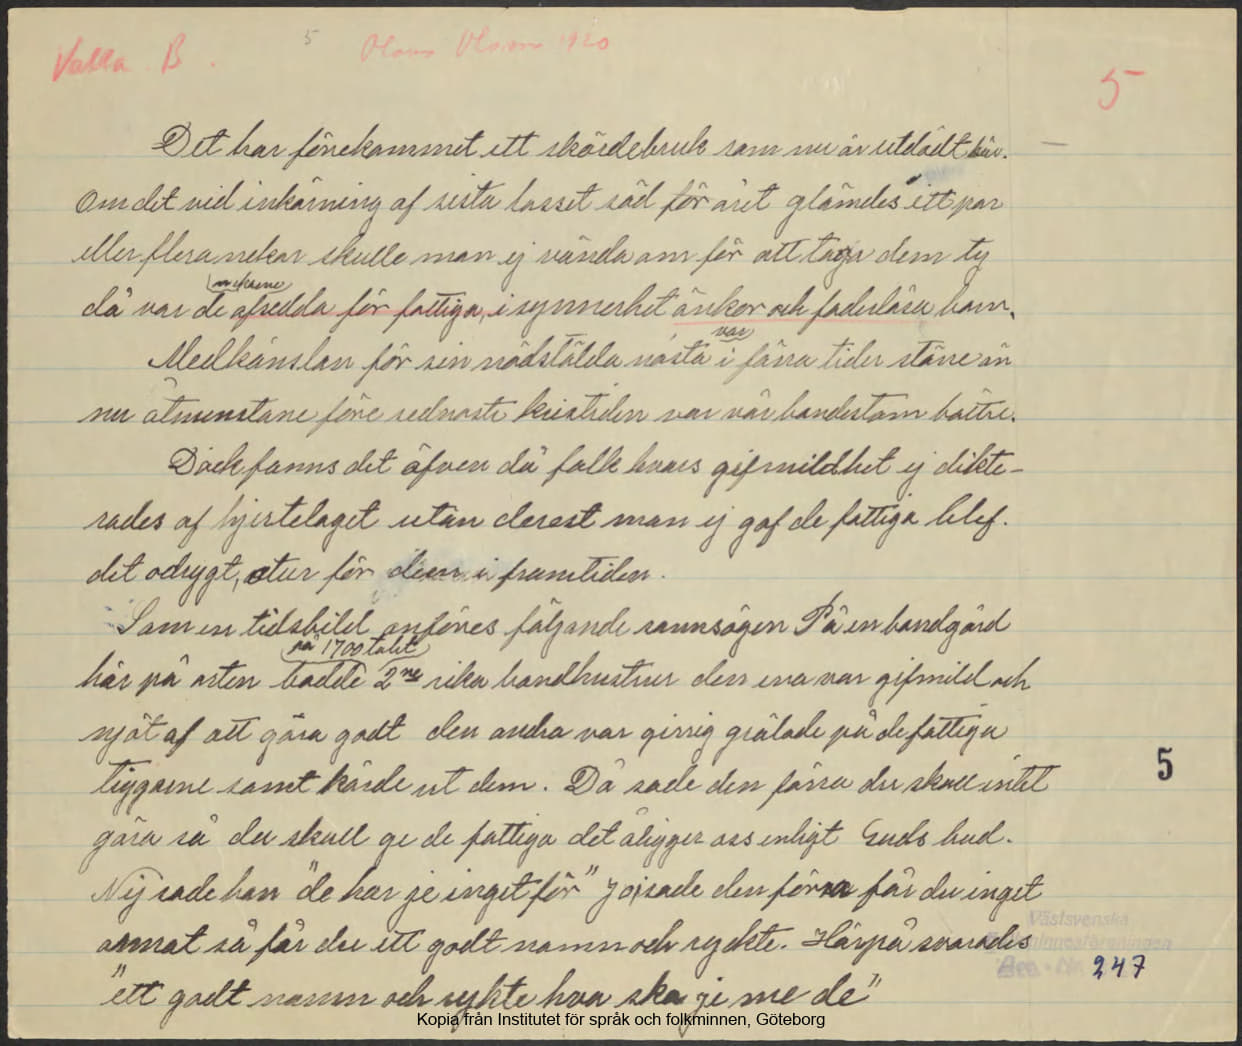 Valla B.
5
Olaus Olsson 1920
5
Det har förekommet ett skördebruk som nu är utdödt här.
Om det vid inkörning af sista lasset säd för året glömdes ett par
eller flera nekar skulle man ej vända om för att taga dem ty
nekarne
då var de afsedda för fattiga, i synnerhet änkor och faderlösa barn.
var
Medkänslan för sin nödstälda nästa i förra tider större än
nu åtminstone före sednaste kristiden var vår bondestam bättre.
Dock fanns det äfven då folk hvars gifmildhet ej dikte-
rades af hjertelaget utan derest man ej gaf de fattiga blef.
det odrygt, otur för dem i framtiden.
Som en tidsbild anföres följande sannsögen På en bondgård
på 1700 talet
här på orten bodde 2ne rika bondhustrur den ena var gifmild och
njöt af att göra godt den andra var girrig grälade på de fattiga
tiggarne samt körde ut dem. Då sade den förra du skall intet
göra så du skall ge de fattiga det åligger oss enligt Guds bud.
Nej sade hon "de har je inget för" Jo, sade den förra får du inget
annat så får du ett godt namn och rygkte. Härpå svarades
"ett godt namn och rykte hva ska je me de"
5
Västsvenska
Folkminnesföreningen
Acc. Nr. 247
Kopia från Institutet för språk och folkminnen, Göteborg